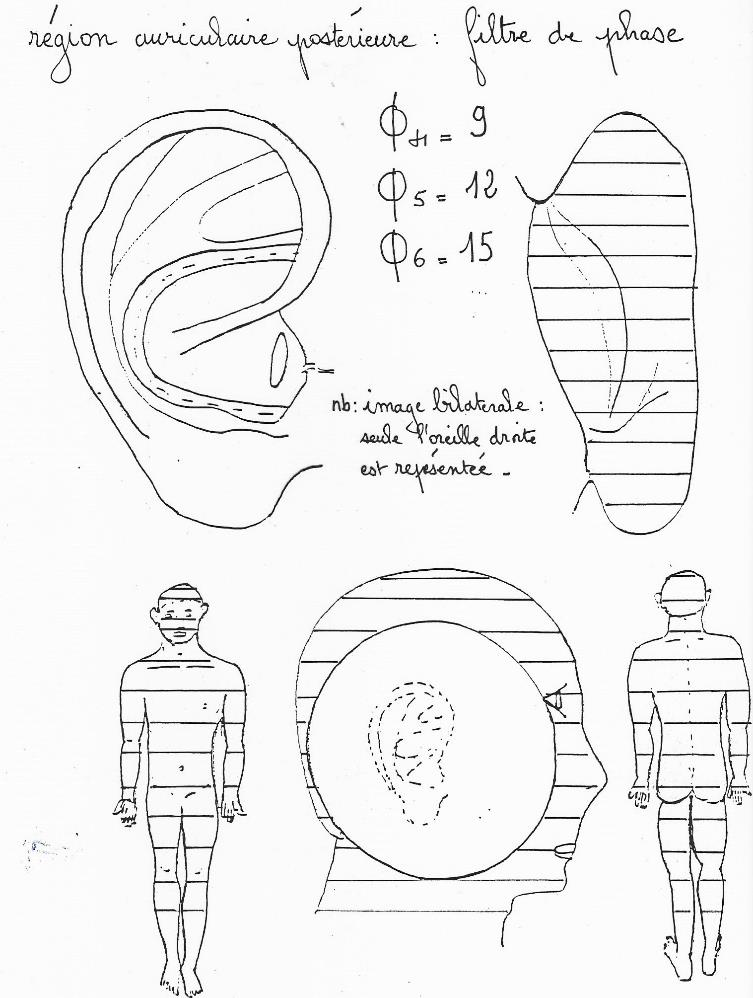 région auriculaire postérieure : filtre de phase
ϕ4 = 9
ϕ5 = 12
ϕ6 = 15
...
nb: image bilatérale :
seule l'oreille droite
est représentée -